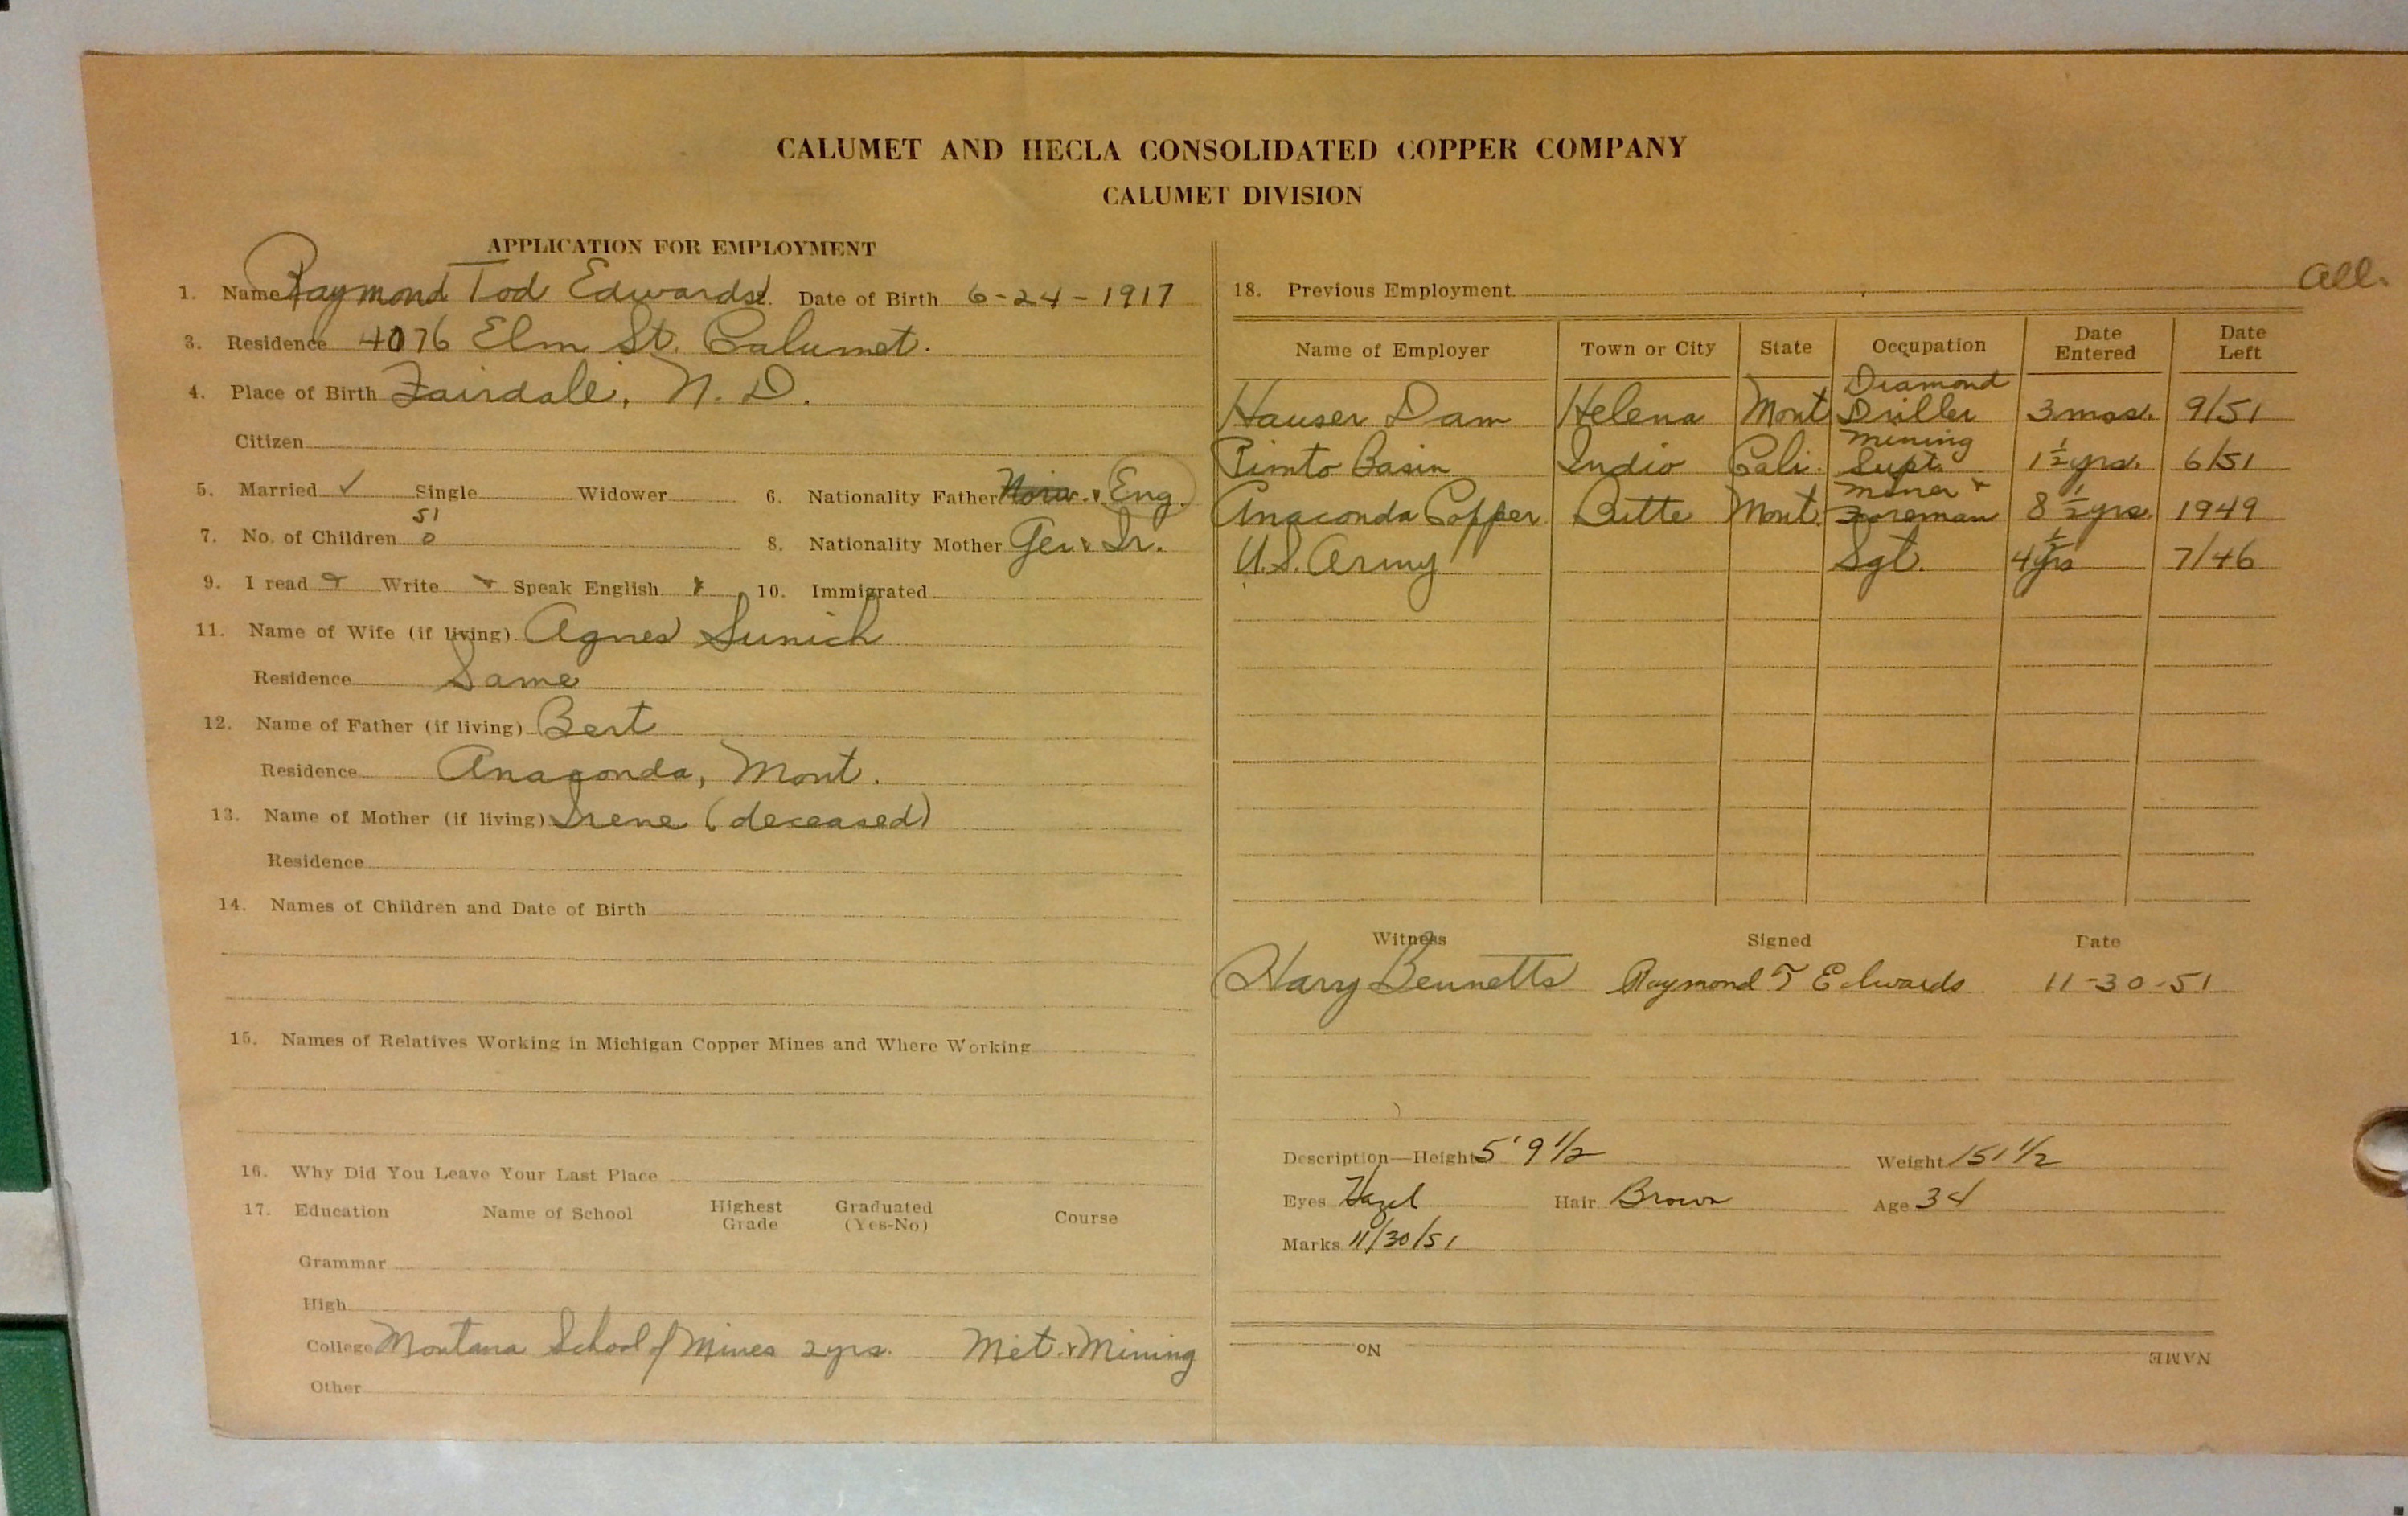 CALUMET AND HECLA CONSOLIDATED COPPER COMPANY
CALUMET DIVISION
APPLICATION FOR EMPLOYMENT
1. Name Raymond Tod Edwards. Date of Birth 6-24-1917
3. Residence 4076 Elm St. Calumet.
4. Place of Birth Fairdale, N. D.
Citizen
5. Married ✓ Single Widower 6. Nationality Father Norw. & Eng.
51
7. No. of Children 0 8. Nationality Mother Ger & Ir.
9. I read Write Speak English 10. Immigrated
11. Name of Wife (if living) Agnes Sunich
Residence Same
12. Name of Father (if living) Bert
Residence Anaconda, Mont.
13. Name of Mother (if living) Irene (deceased)
Residence
14. Names of Children and Date of Birth
15. Names of Relatives Working in Michigan Copper Mines and Where Working
16. Why Did You Leave Your Last Place
17. Education Name of School Highest Grade Graduated (Yes-No) Course
Grammar
High
College Montana School of Mines 2 yrs. Met. & Mining
Other
18. Previous Employment all.
Name of Employer Town or City State Occupation Date Entered Date Left
Hauser Dam Helena Mont Diamond Driller 3 mos. 9/51
Pinto Basin Indio Cali. Mining Supt. 1 1/2 yrs. 6/51
Anaconda Copper Butte Mont. Miner & Foreman 8 1/2 yrs. 1949
U.S. Army Sgt. 4 1/2 yrs 7/46
Witness Signed Date
Harry Bennetts Raymond T Edwards 11-30-51
Description—Height 5' 9 1/2 Weight 151 1/2
Eyes Hazel Hair Brown Age 34
Marks 11/30/51
No.
NAME